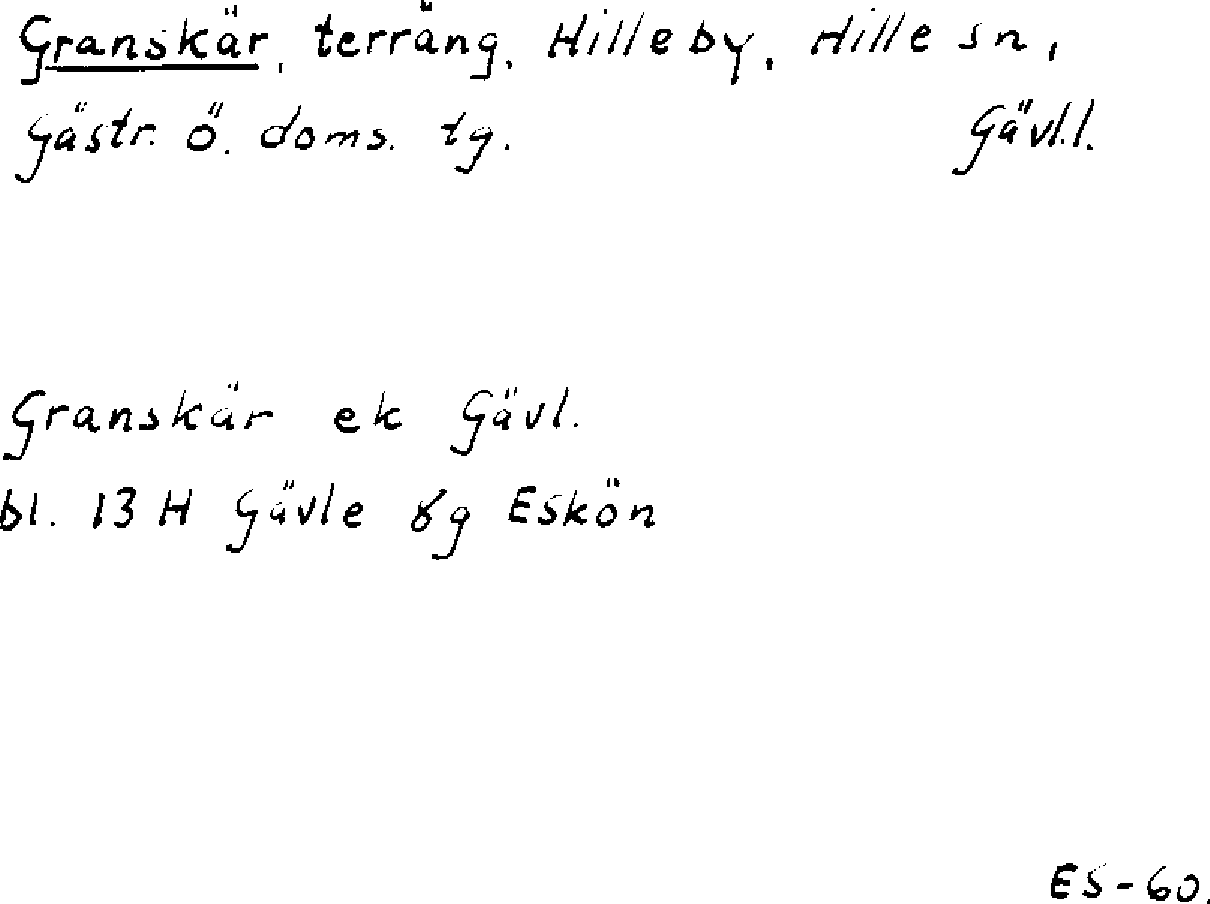 Granskär, terräng, Hilleby, Hille sn,
Gästr. ö. doms. tg. Gävl.l.
Granskär ek Gävl.
bl. 13 H Gävle 8g Eskön
ES-60.